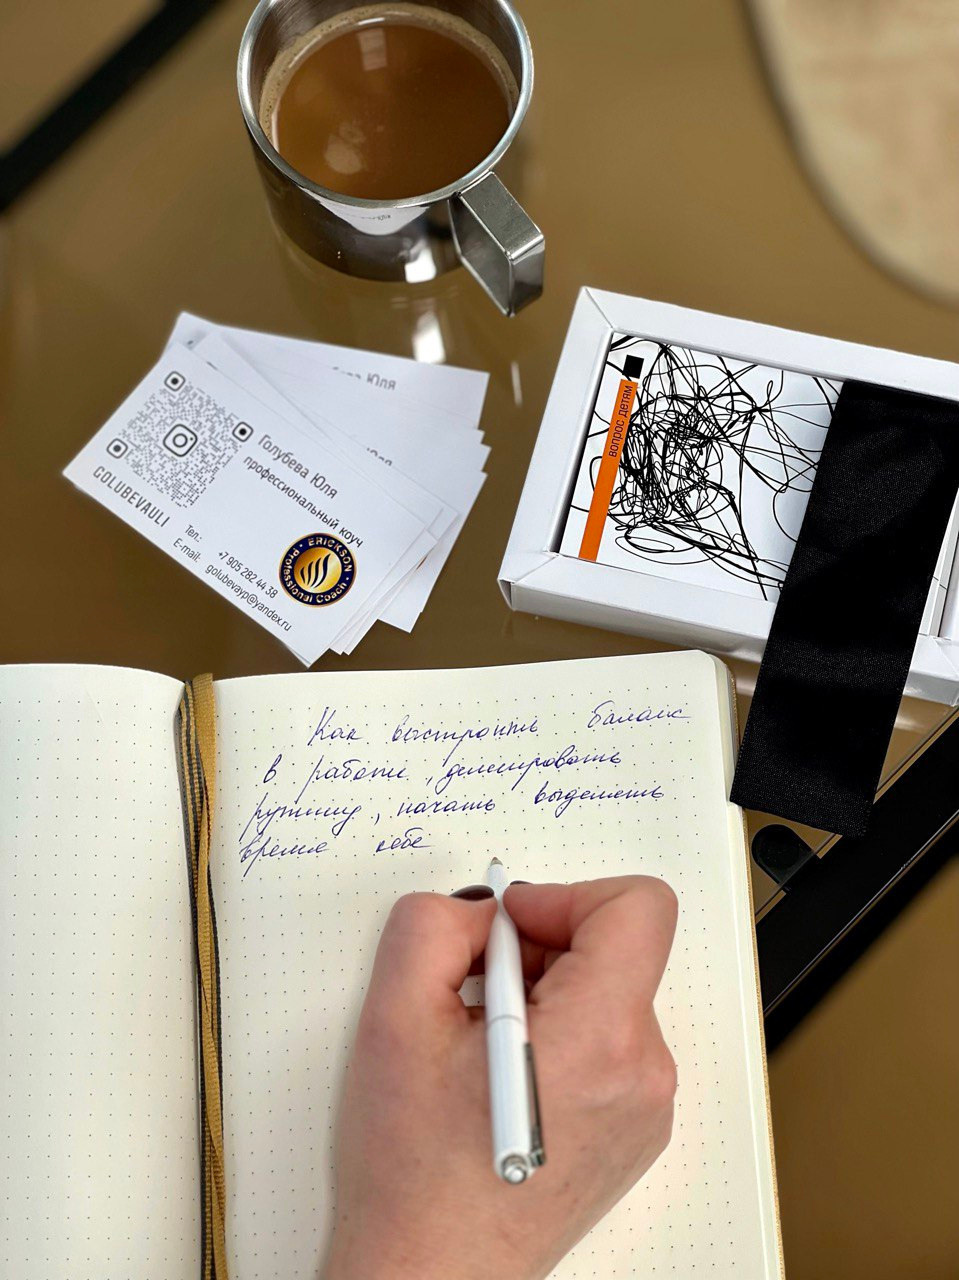 Юля
Юля
Голубева Юля
профессиональный коуч
GOLUBEVAULI
Тел.: +7 905 282 44 38
E-mail: golubevayp@yandex.ru
ERICKSON
Professional Coach
вопрос детям
Как выстроить баланс
в работе, делегировать
рутину, начать выделять
время себе